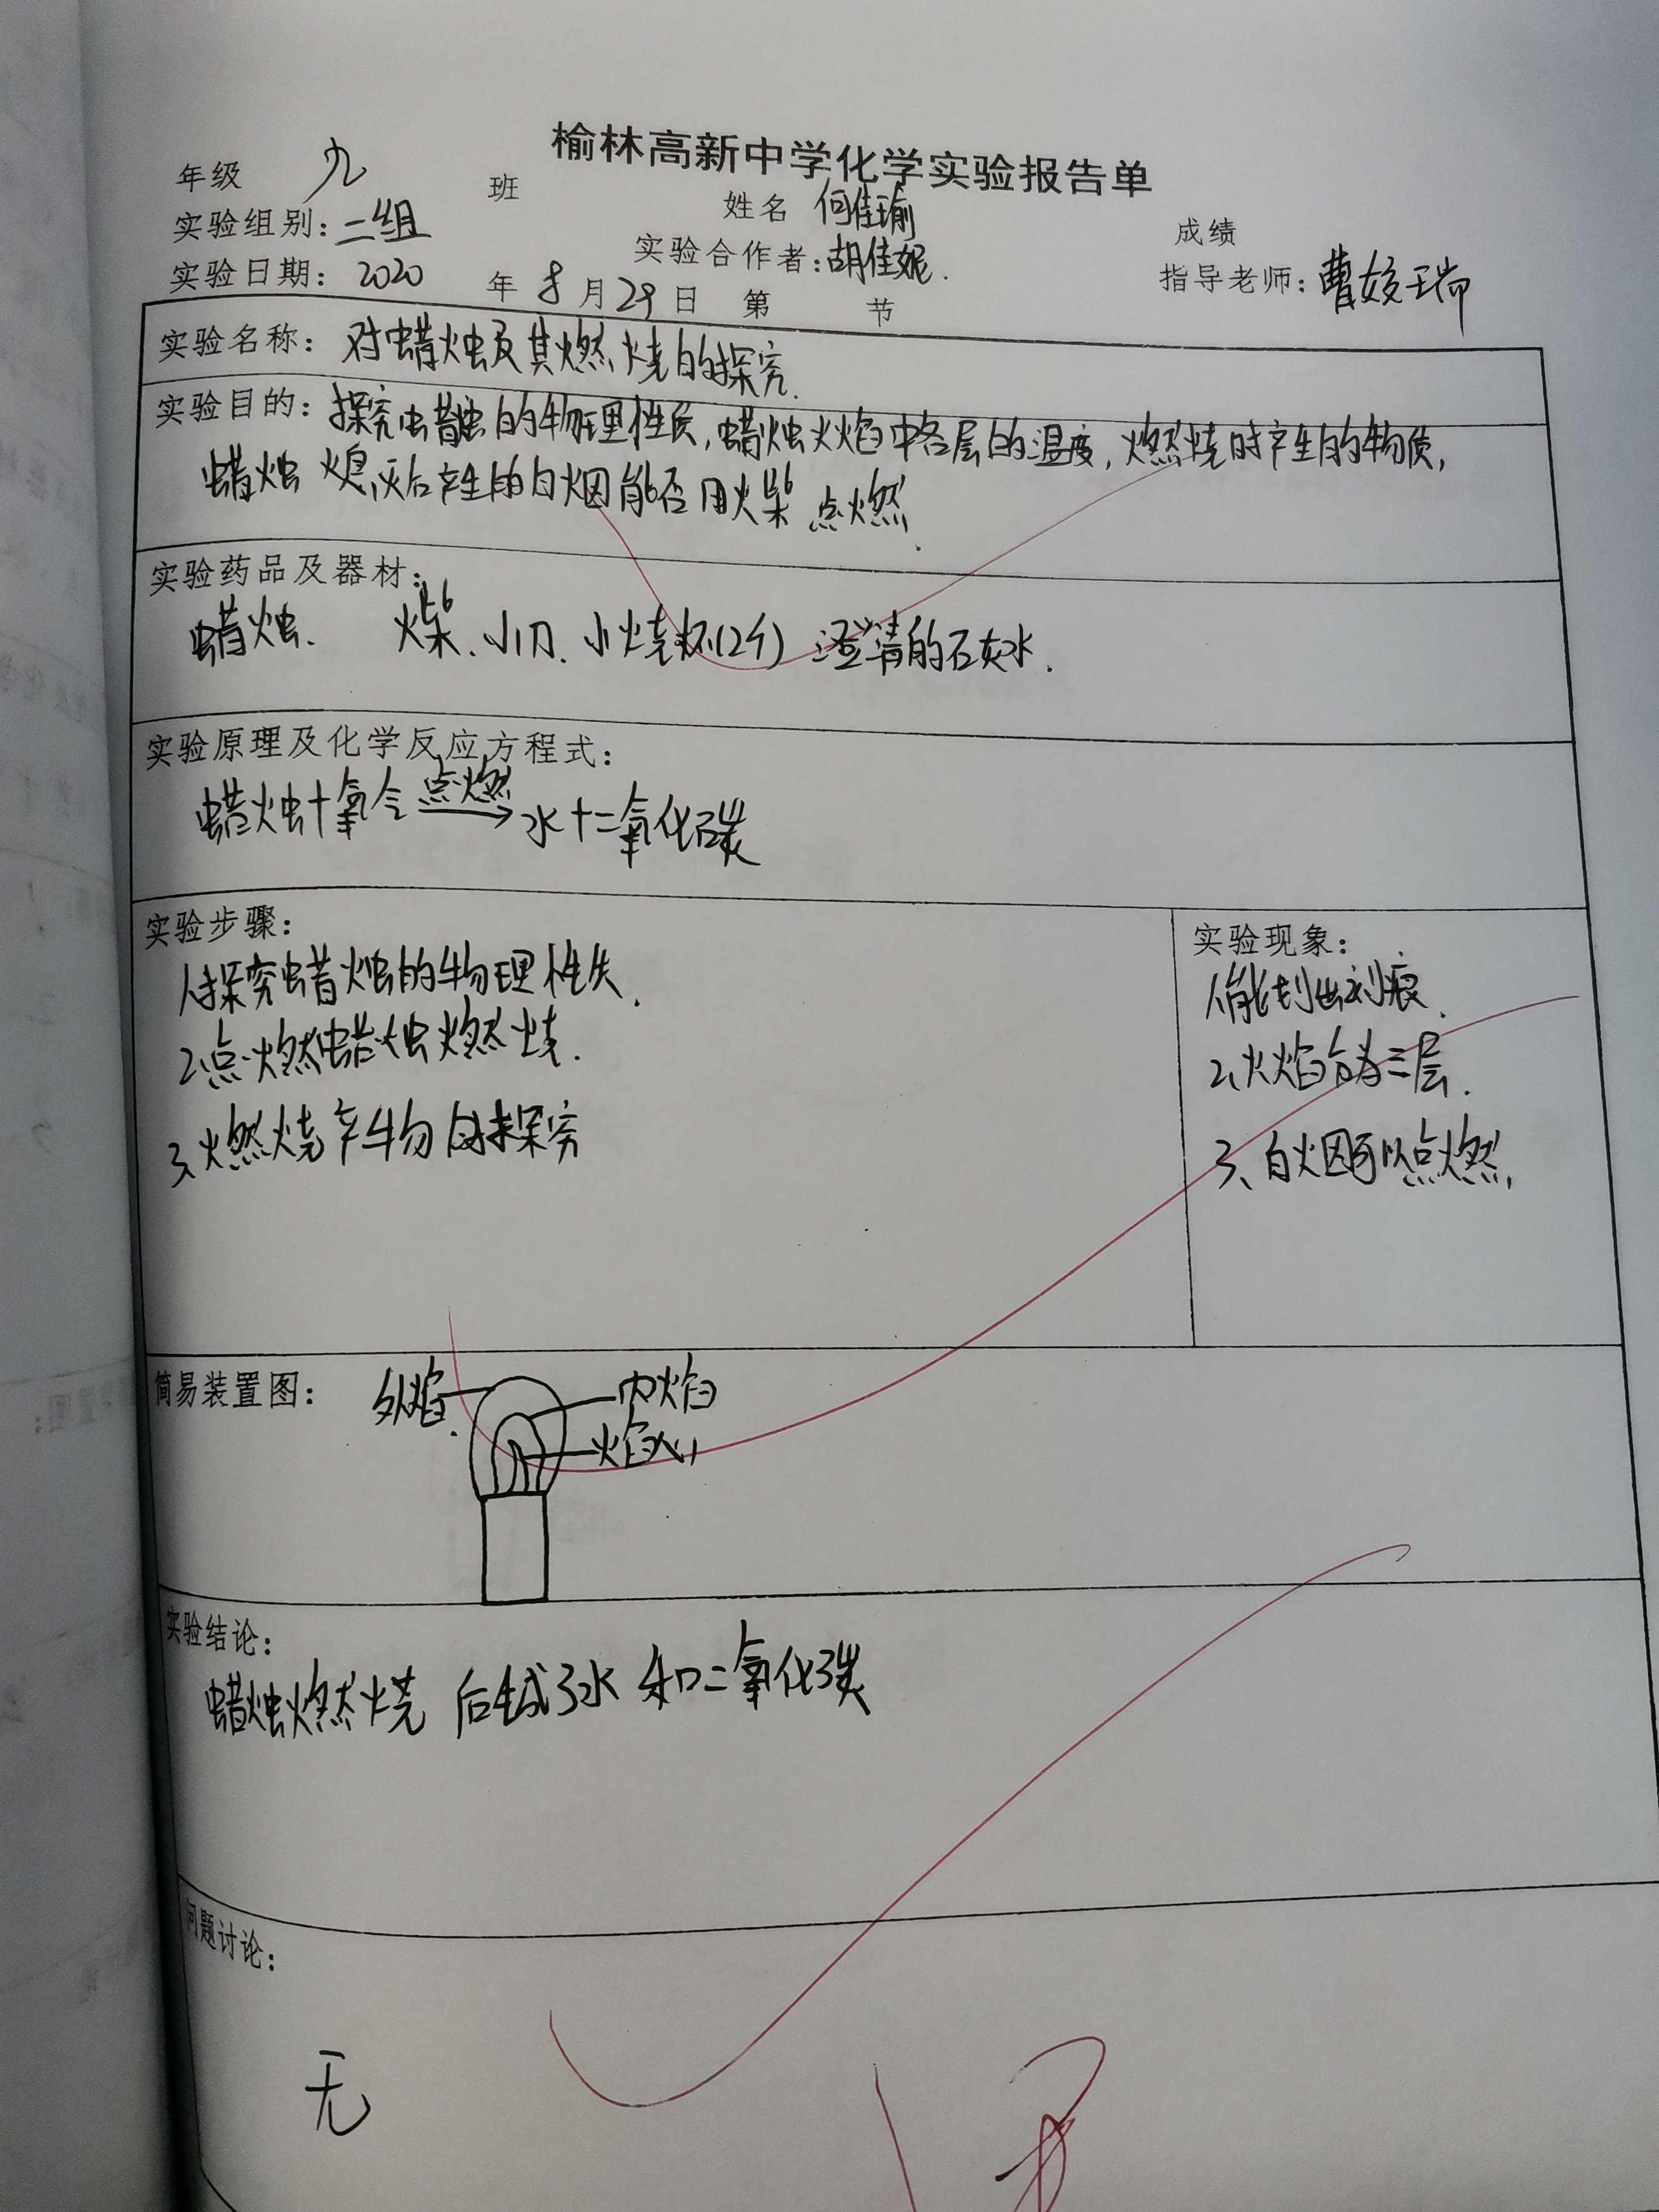 榆林高新中学化学实验报告单
年级 九 班 姓名 何佳瑜 成绩
实验组别：二组 实验合作者：胡佳妮. 指导老师：曹姣瑞
实验日期：2020 年 8 月 29 日 第 节
实验名称：对蜡烛及其燃烧的探究.
实验目的：探究蜡烛的物理性质,蜡烛火焰中各层的温度,燃烧时产生的物质,
蜡烛熄灭后产生的白烟能否用火柴点燃.
实验药品及器材：
蜡烛、火柴、小刀、小烧杯(2个) 澄清的石灰水.
实验原理及化学反应方程式：
蜡烛+氧气 点燃→ 水+二氧化碳
实验步骤：
1、探究蜡烛的物理性失.
2、点燃蜡烛燃烧.
3、燃烧产生物的探究
实验现象：
1、能划出划痕.
2、火焰分为三层.
3、白烟可以点燃.
简易装置图：
外焰.
内焰
焰心
实验结论：
蜡烛燃烧后生成了水和二氧化碳
问题讨论：
无